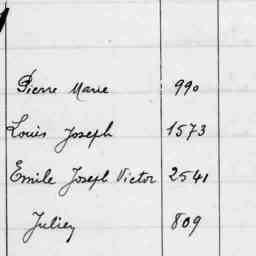 Pierre Marie 990
Louis Joseph 1573
Emile Joseph Victor 2541
Julien 809